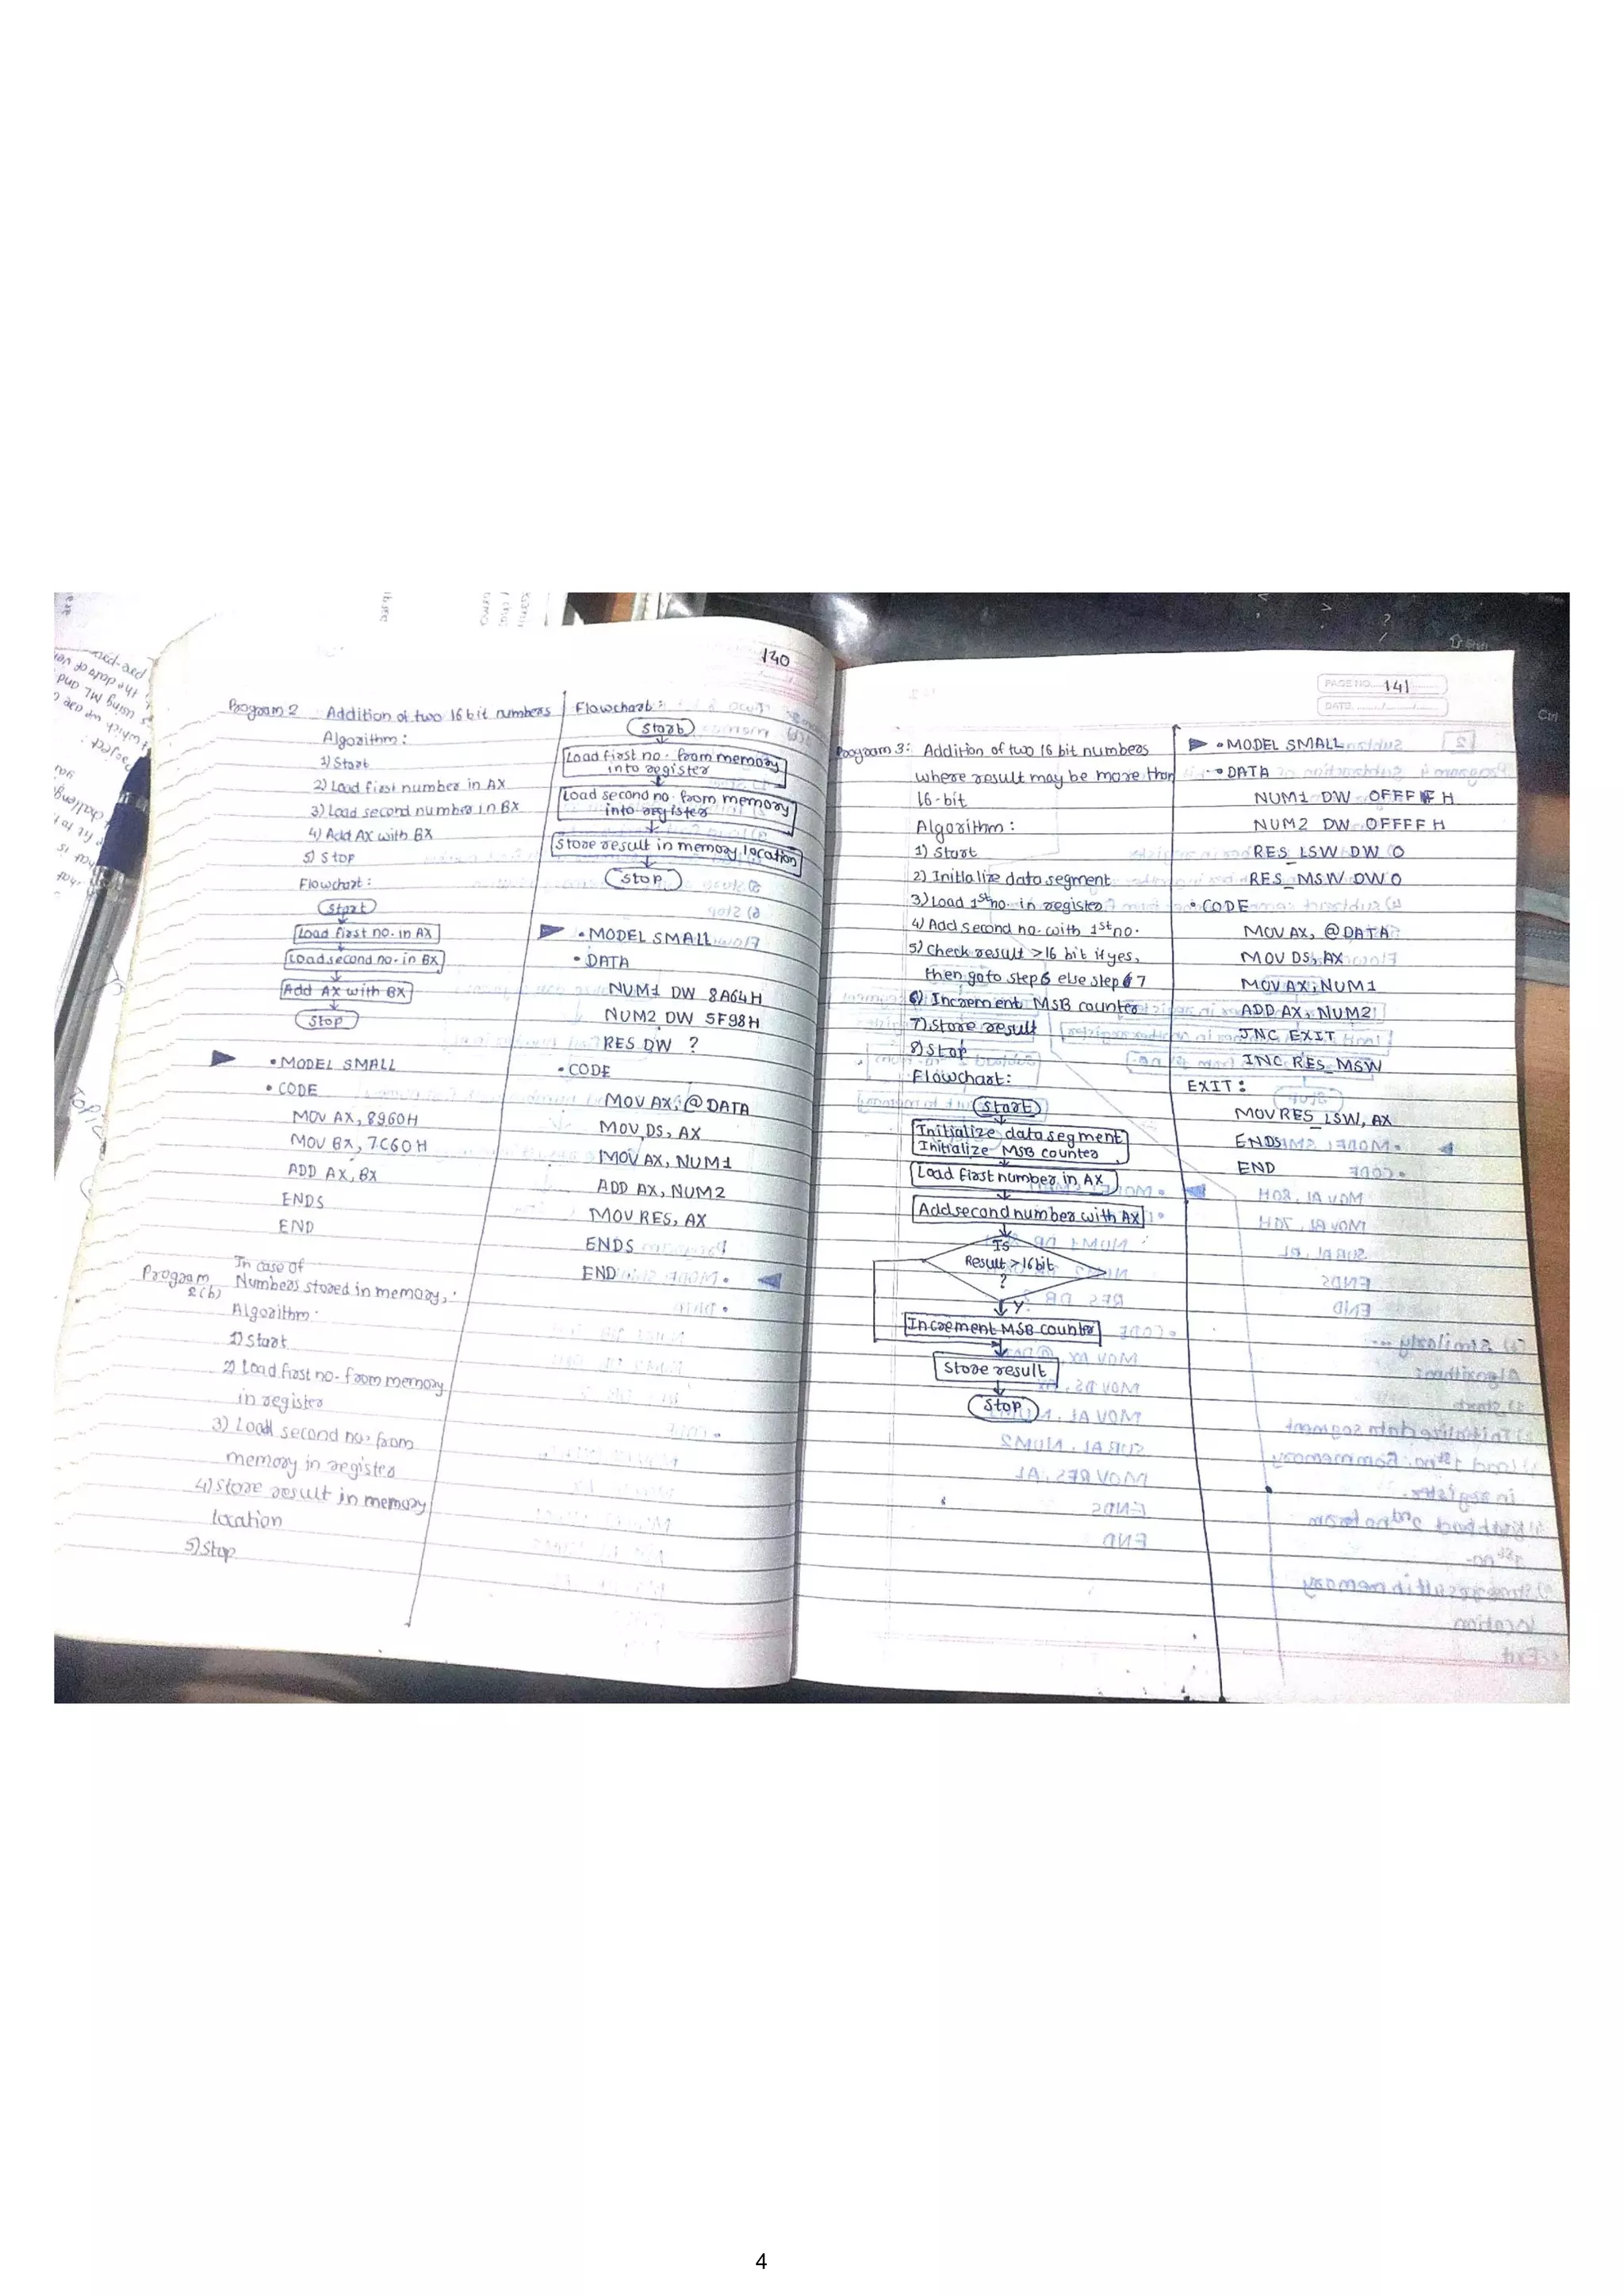 140
Program 2 Addition of two 16 bit numbers
Algorithm:
1) Start
2) Load first number in AX
3) Load second number in BX
4) Add AX with BX
5) Stop
Flowchart:
Start
Load first no. in AX
Load second no. in BX
Add AX with BX
Stop
• MODEL SMALL
• CODE
MOV AX, 8960H
MOV BX, 7C60H
ADD AX, BX
ENDS
END
In case of
Program 2(b) Numbers stored in memory,
Algorithm:
1) Start
2) Load first no. from memory
in register
3) Load second no. from
memory in register
4) Store result in memory
location
5) Stop
Flowchart:
Start
Load first no. from memory
into register
Load second no. from memory
into register
Store result in memory location
Stop
• MODEL SMALL
• DATA
NUM1 DW 8A64H
NUM2 DW 5F98H
RES DW ?
• CODE
MOV AX, @DATA
MOV DS, AX
MOV AX, NUM1
ADD AX, NUM2
MOV RES, AX
ENDS
END
PAGE NO. 141
DATE
Program 3: Addition of two 16 bit numbers
where result may be more than
16-bit
Algorithm:
1) Start
2) Initialize data segment
3) Load 1st no. in register
4) Add second no. with 1st no.
5) Check result >16 bit if yes,
then go to step 6 else step 7
6) Increment MSB counter
7) Store result
8) Stop
Flowchart:
Start
Initialize data segment
Initialize MSB counter
Load First number in AX
Add second number with AX
Is
Result > 16 bit
?
Y
Increment MSB counter
Store result
Stop
• MODEL SMALL
• DATA
NUM1 DW 0FFFFH
NUM2 DW 0FFFFH
RES_LSW DW 0
RES_MSW DW 0
• CODE
MOV AX, @DATA
MOV DS, AX
MOV AX, NUM1
ADD AX, NUM2
JNC EXIT
INC RES_MSW
EXIT:
MOV RES_LSW, AX
ENDS
END
4